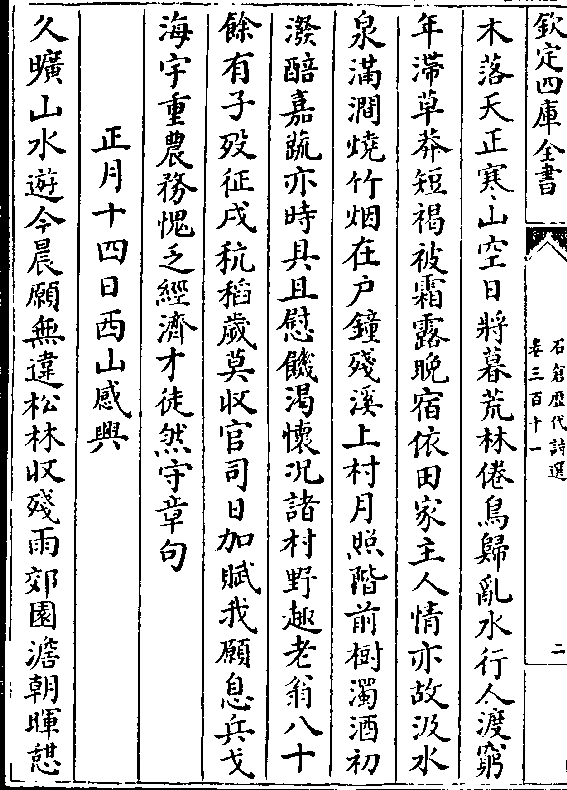 欽定四庫全書
石倉歷代詩選
卷三百十一
二
木落天正寒山空日將暮荒林倦鳥歸亂水行人渡窮
年滯草莽短褐被霜露晚宿依田家主人情亦故汲水
泉滿澗燒竹烟在户鐘殘溪上村月照階前樹濁酒初
潑醅嘉蔬亦時具且慰饑渴懷况諸村野趣老翁八十
餘有子殁征戍秔稻歲莫收官司日加賦我願息兵戈
海宇重農務愧乏經濟才徒然守章句
正月十四日西山感興
久曠山水遊今晨願無違松林收殘雨郊園澹朝暉憇